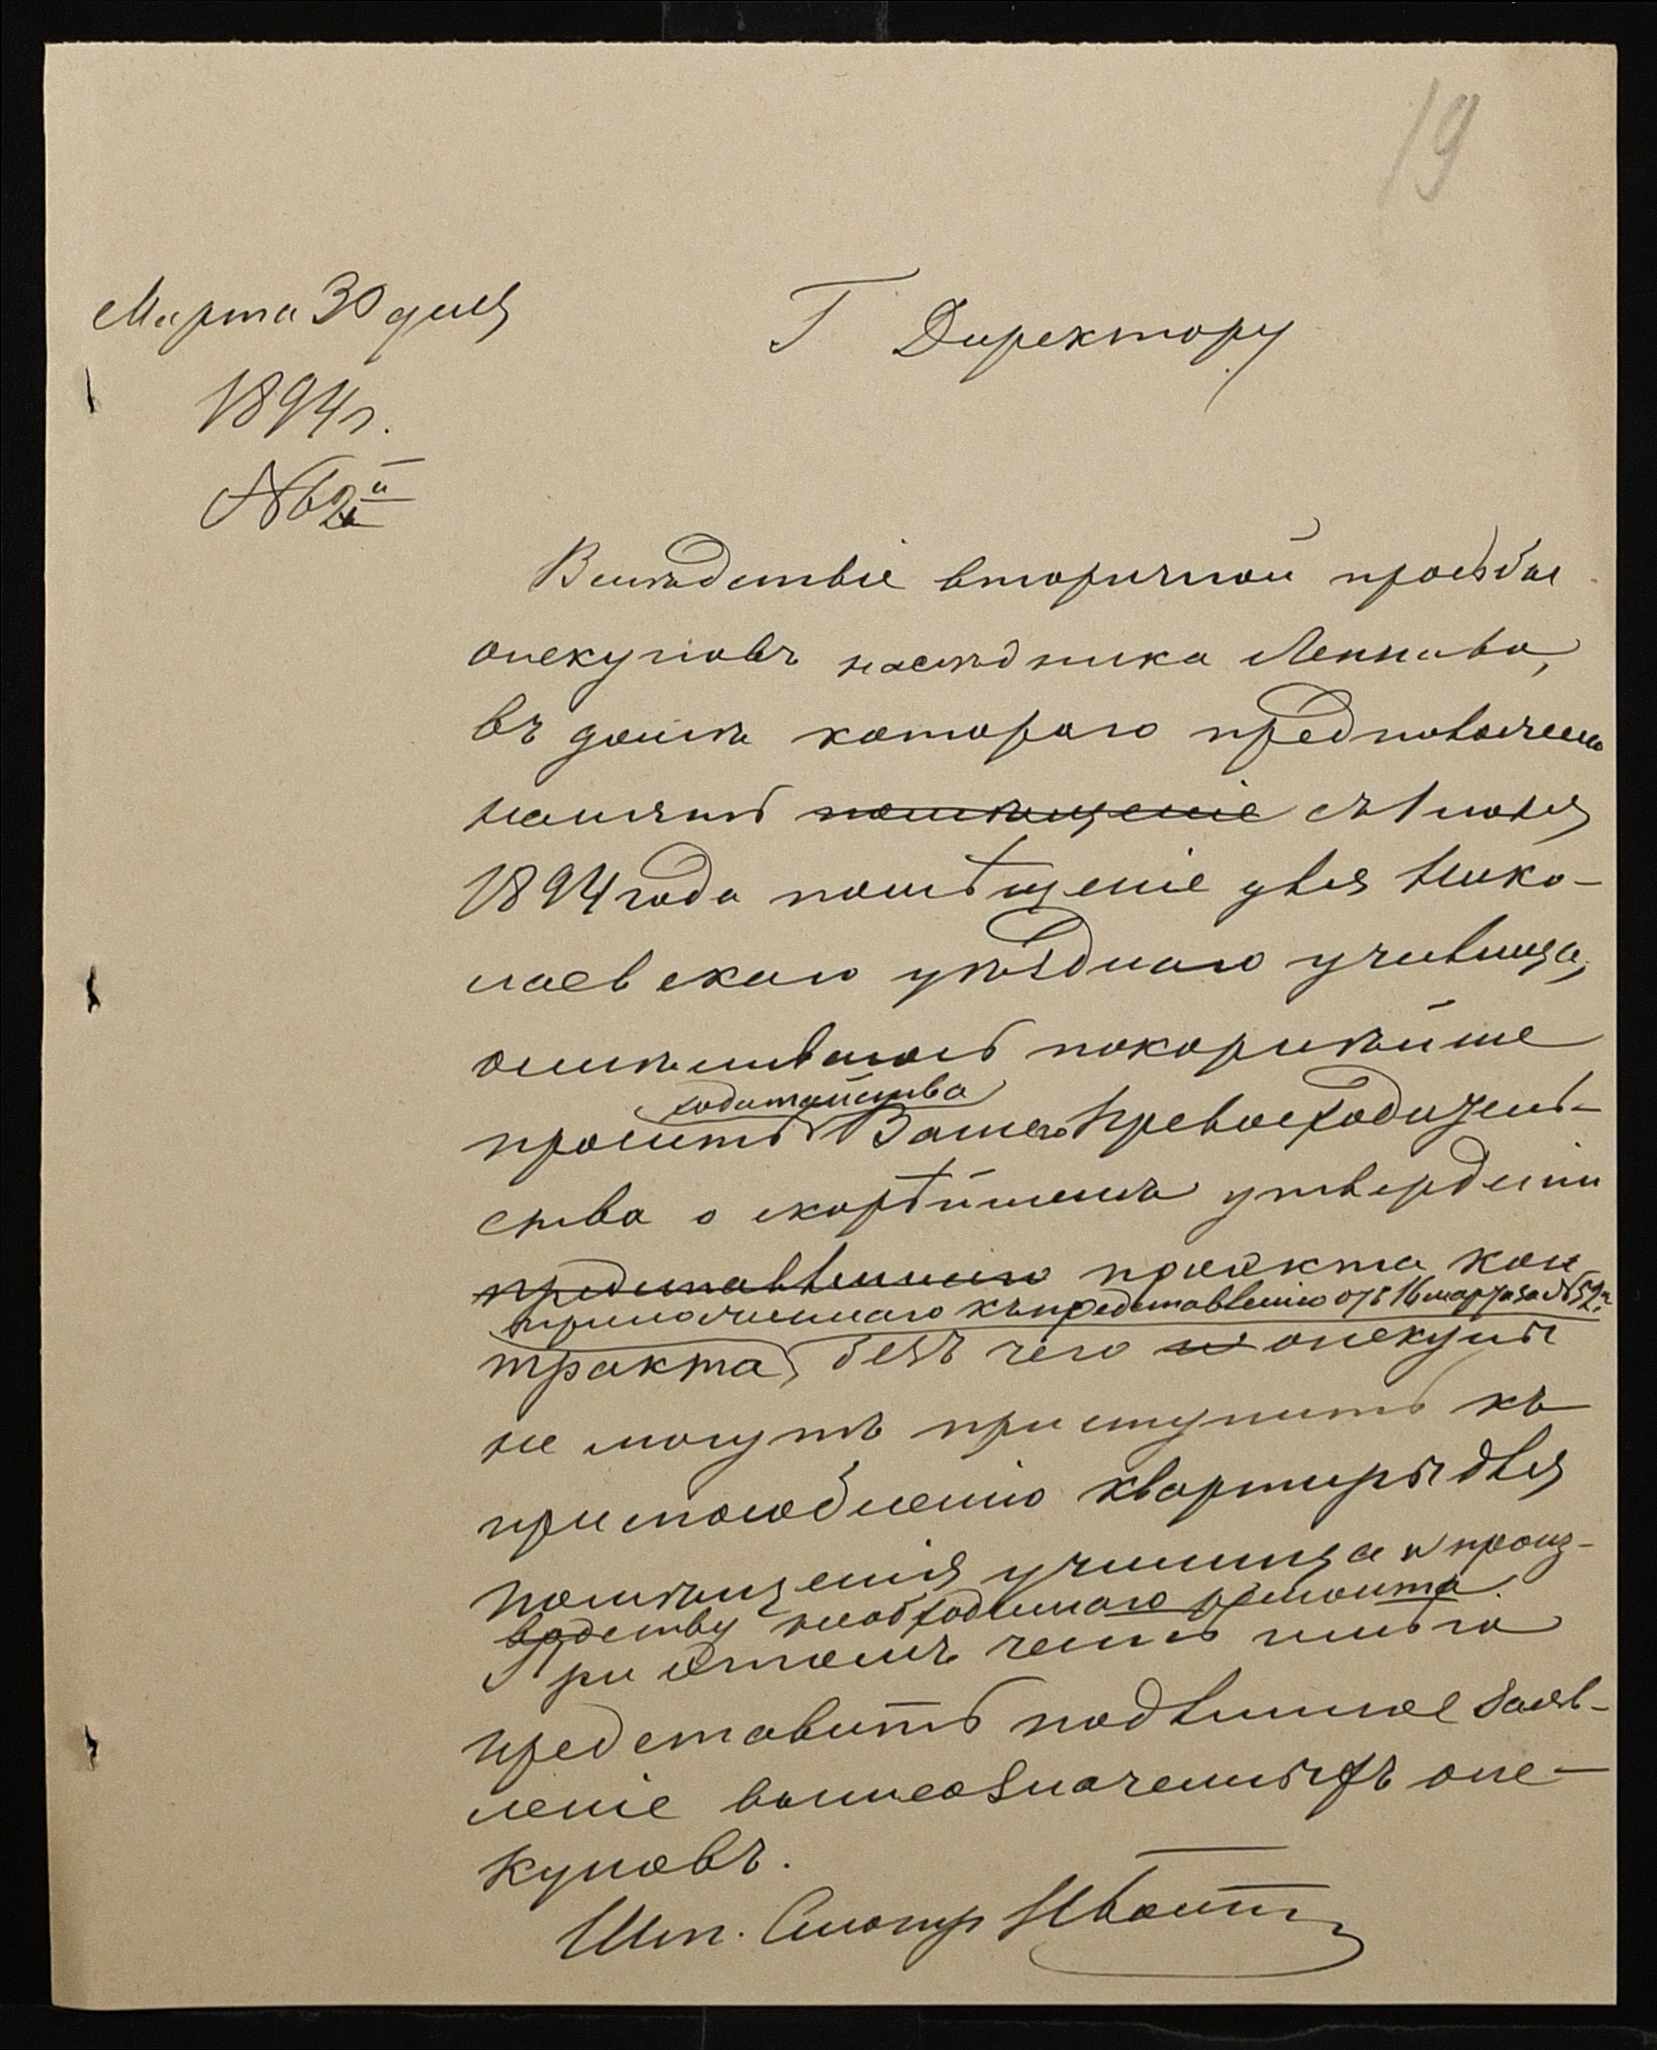 19
Марта 30 дня
1894 г.
№ 62
Г Директору
Вслѣдствіе вторичной просьбы
опекуновъ наслѣдника
въ домѣ котораго предположено
нанять помѣщеніе съ 1 іюля
1894 года помѣщеніе для Нико-
лаевскаго уѣзднаго училища,
осмѣливаюсь покорнѣйше
ходатайства
просить Вашего Превосходитель-
ства о скорѣйшемъ утвержденіи
представленнаго проэкта кон-
приложеннаго къ представленію отъ 16 марта за № 52,
тракта, безъ чего опекуны
не могутъ приступить къ
приспособленію квартиры для
помѣщенія училища и произ-
водству необходимаго ремонта.
При этомъ честь имѣю
представить подлинное заяв-
леніе вышеозначенныхъ опе-
куновъ.
Шт. Смотр